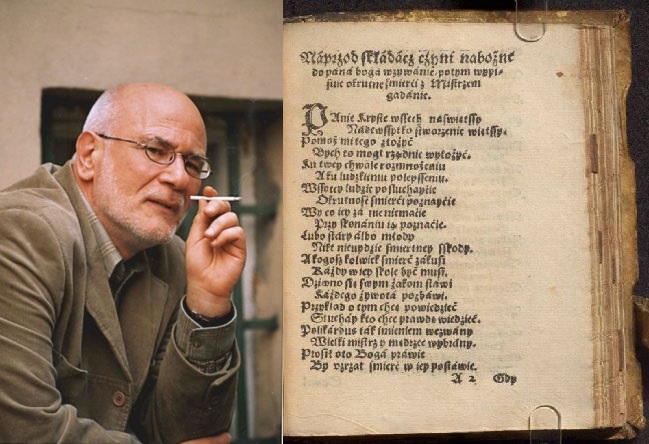 Náprzod składácz czyni nabożne
do páná bogá wzywánie, potym wypi-
suie okrutne śmierći z Mistrzem
gadánie.
PAnie Kryste wssech naświetssy
Nádewssytko stworzenie wietssy.
Pomoż mi tego złożyć
Bych to mogł rządnie wyłożyć.
Ku twey chwale rozmnożeniu
A ku ludzkiemu polepsseniu.
Wssyscy ludzie posłucháycie
Okrutność śmierći poznaycie
Wy co iey zá nic nie macie
Przy skonániu ią poznácie.
Lubo stáry álbo młody
Nikt nie uydzie śmiertney sskody.
A kogoż kolwiek śmierć zákusi
Káżdy w iey skole być musi.
Dziwno się swym żakom stáwi
Káżdego żywotá pozbáwi.
Przykład o tym chcę powiedzieć
Słuchay kto chce prawdę wiedzieć.
Polikárpus ták imieniem wezwány
Wielki mistrz y mędrzec wybrány.
Prosił oto Bogá práwie
By uzrzał śmierć w iey postáwie.
A 2 Gdy